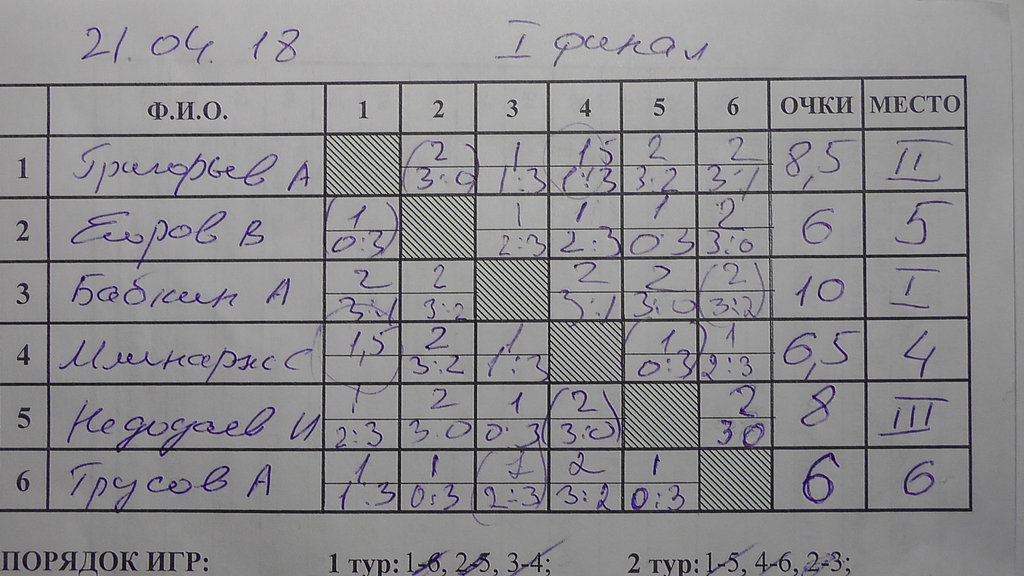 21.04.18 I финал
Ф.И.О. 1 2 3 4 5 6 ОЧКИ МЕСТО
1 Григорьев А 2 3:0 1 1:3 1,5 1:3 2 3:2 2 3:1 8,5 II
2 Егоров В 1 0:3 1 2:3 1 2:3 1 0:3 2 3:0 6 5
3 Бабкин А 2 3:1 2 3:2 2 3:1 2 3:0 2 3:2 10 I
4 Млинарж С 1,5 2 3:2 1 1:3 1 0:3 1 2:3 6,5 4
5 Недодаев И 1 2:3 2 3:0 1 0:3 2 3:0 2 30 8 III
6 Трусов А 1 1:3 1 0:3 1 2:3 2 3:2 1 0:3 6 6
ПОРЯДОК ИГР: 1 тур: 1-6, 2-5, 3-4; 2 тур: 1-5, 4-6, 2-3;